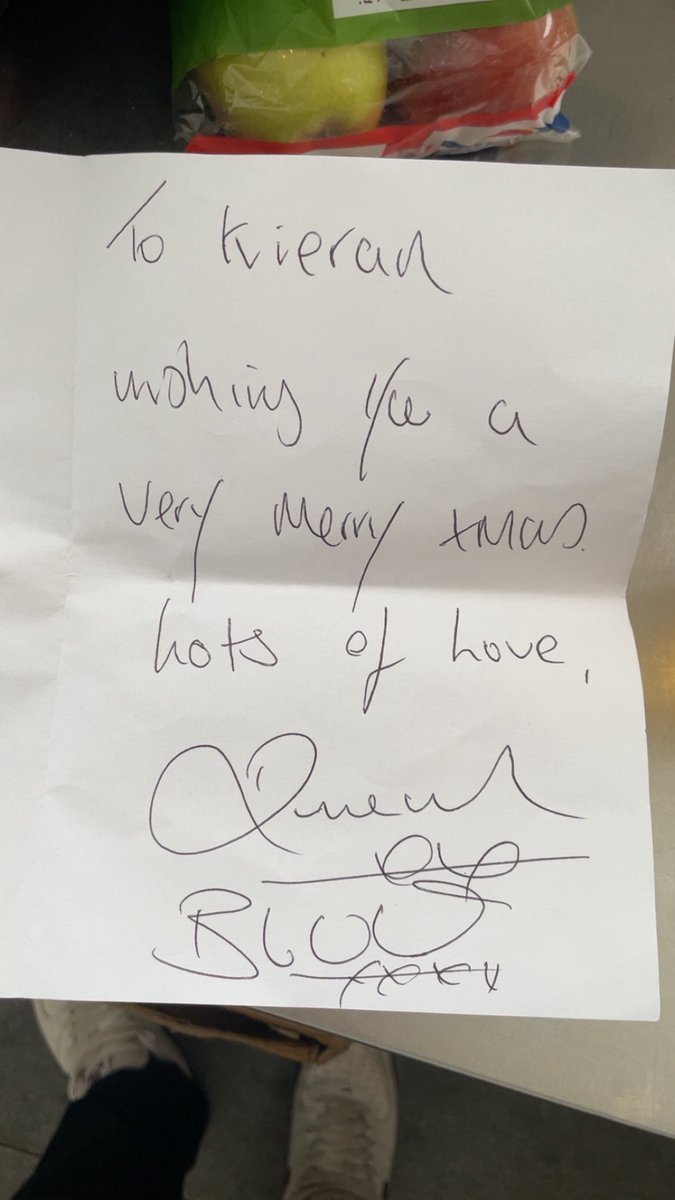 To Kieran
wishing you a
very Merry xmas.
Lots of Love,
xxxx